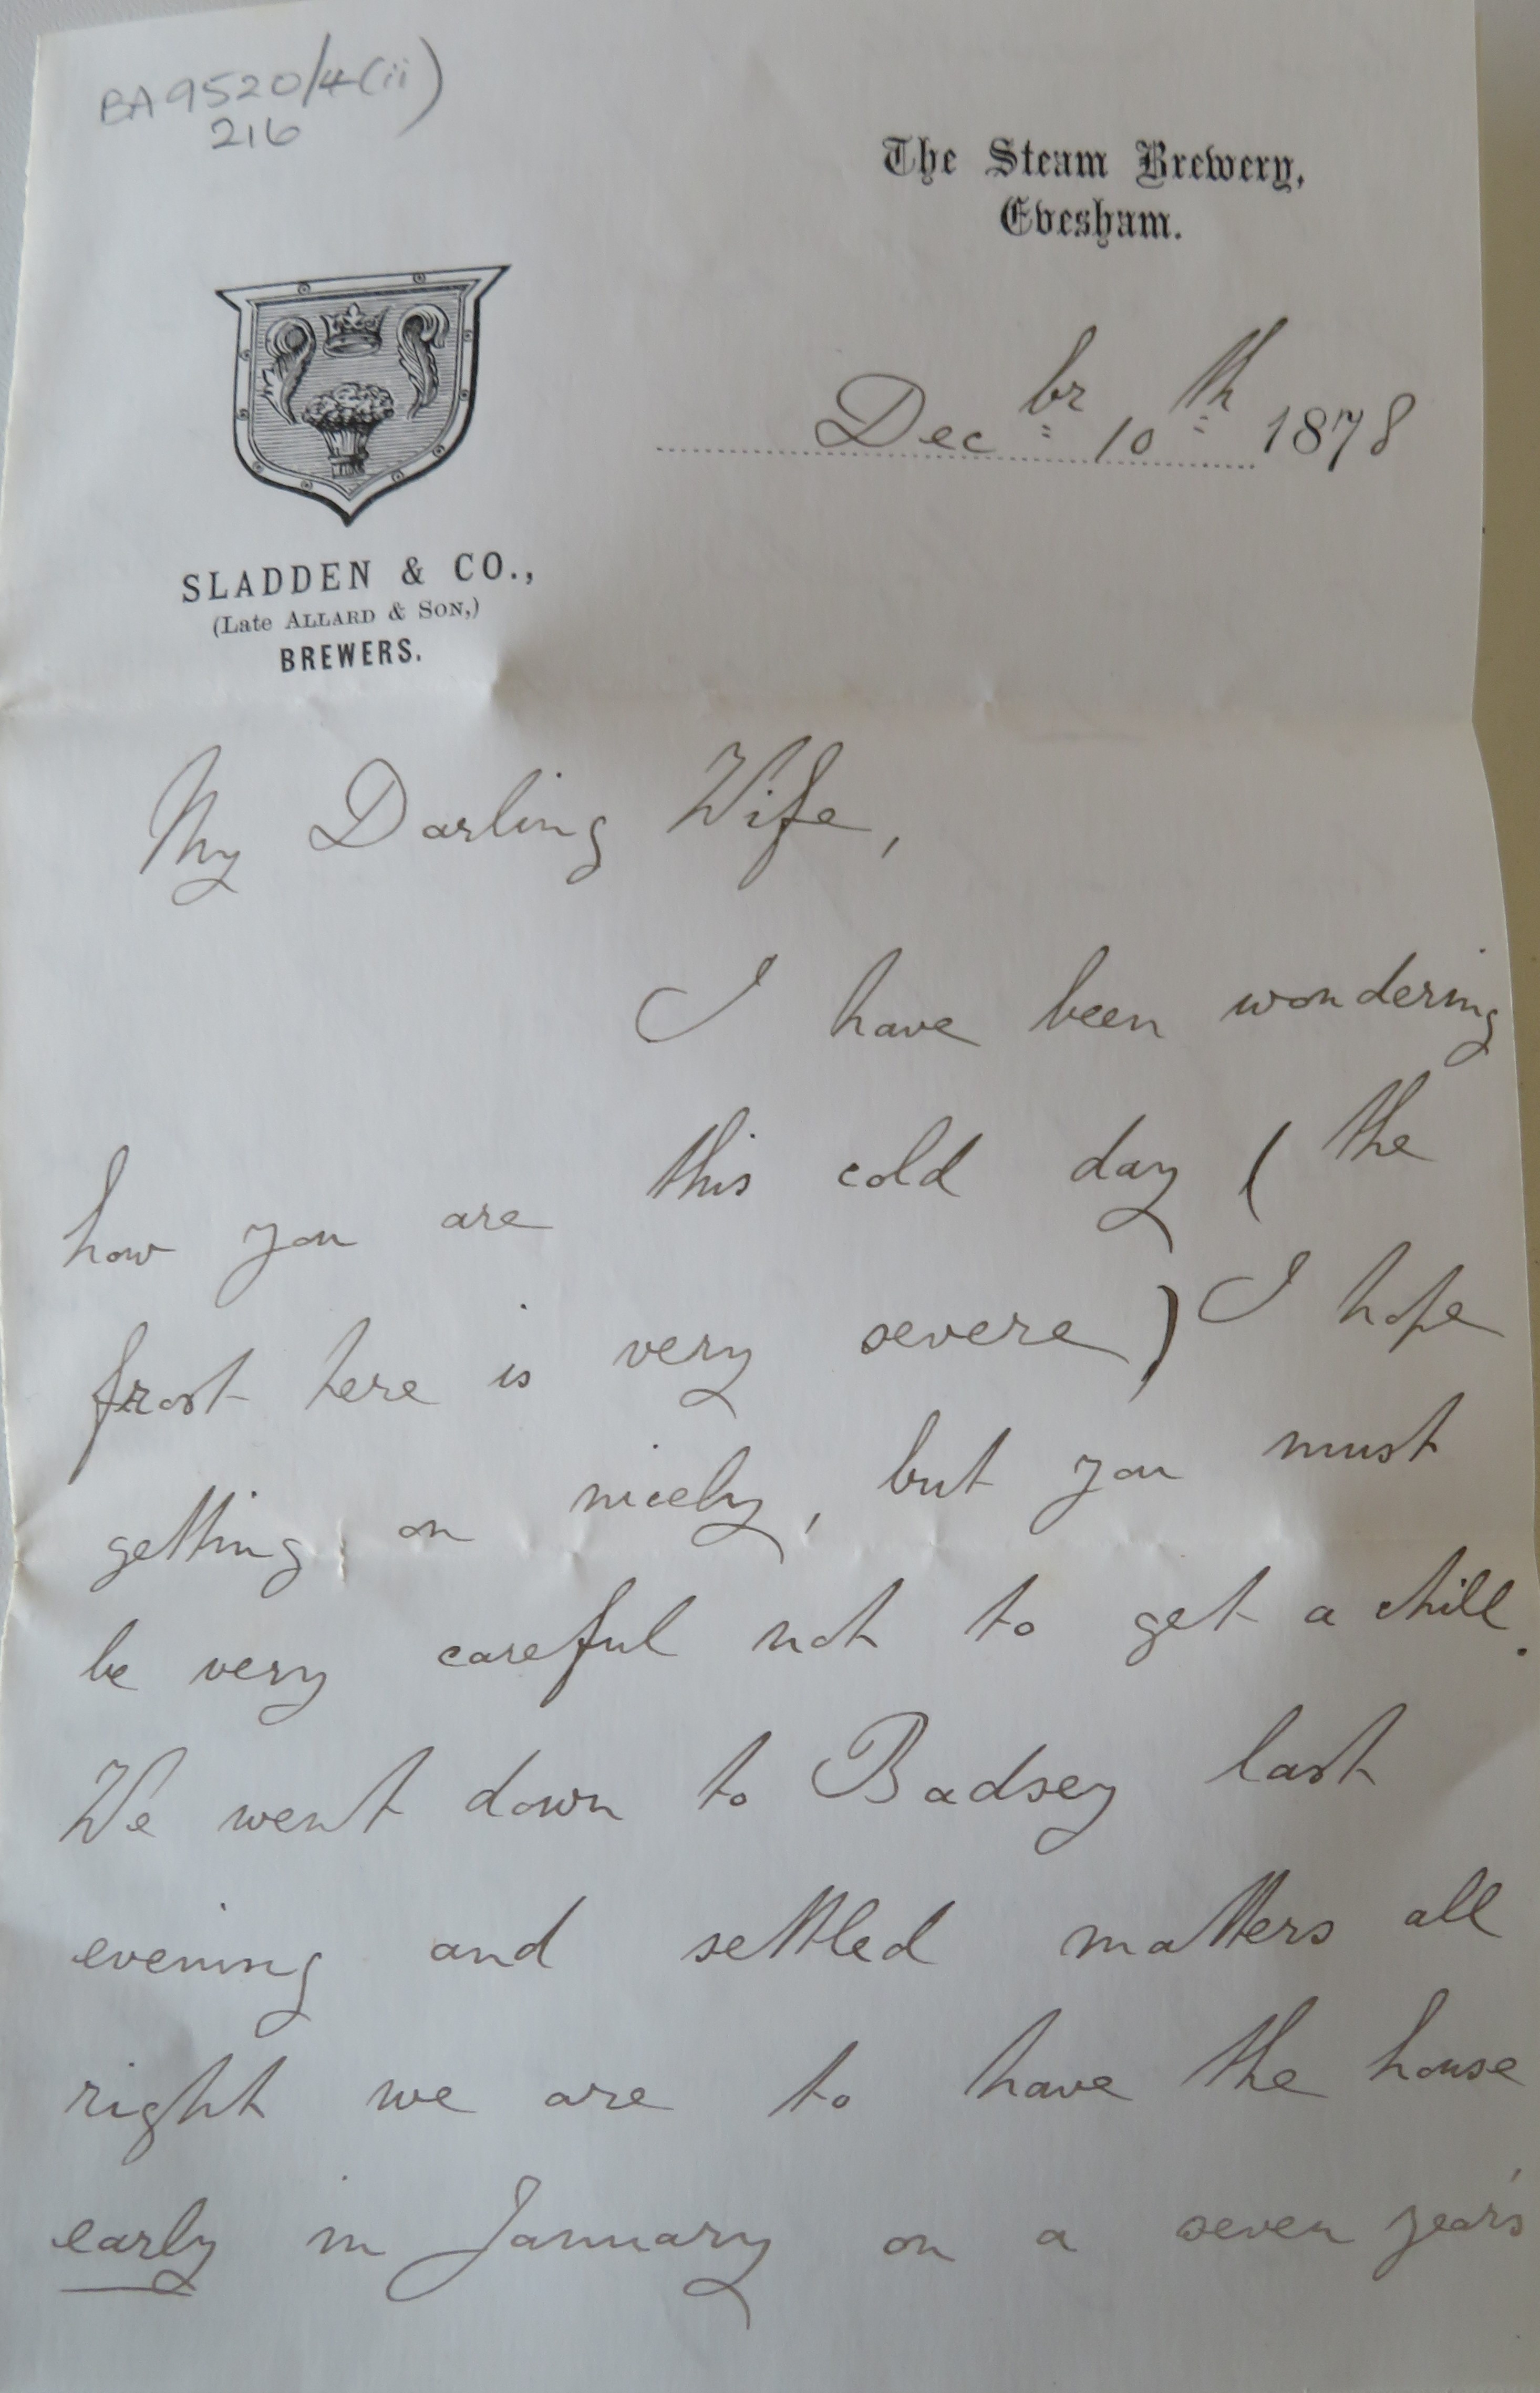 BA9520/4(ii)
216
The Steam Brewery,
Evesham.
Decbr 10th 1878
SLADDEN & CO.,
(Late ALLARD & SON,)
BREWERS.
My Darling Wife,
I have been wondering
how you are this cold day (the
frost here is very severe) I hope
getting on nicely, but you must
be very careful not to get a chill.
We went down to Badsey last
evening and settled matters all
right we are to have the house
early in January on a seven year's